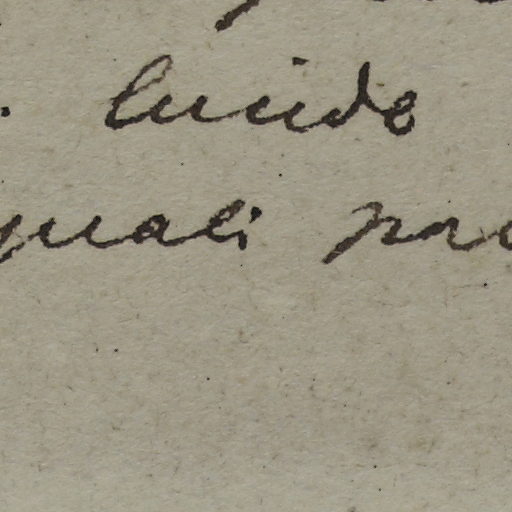 . lucido
quali pro